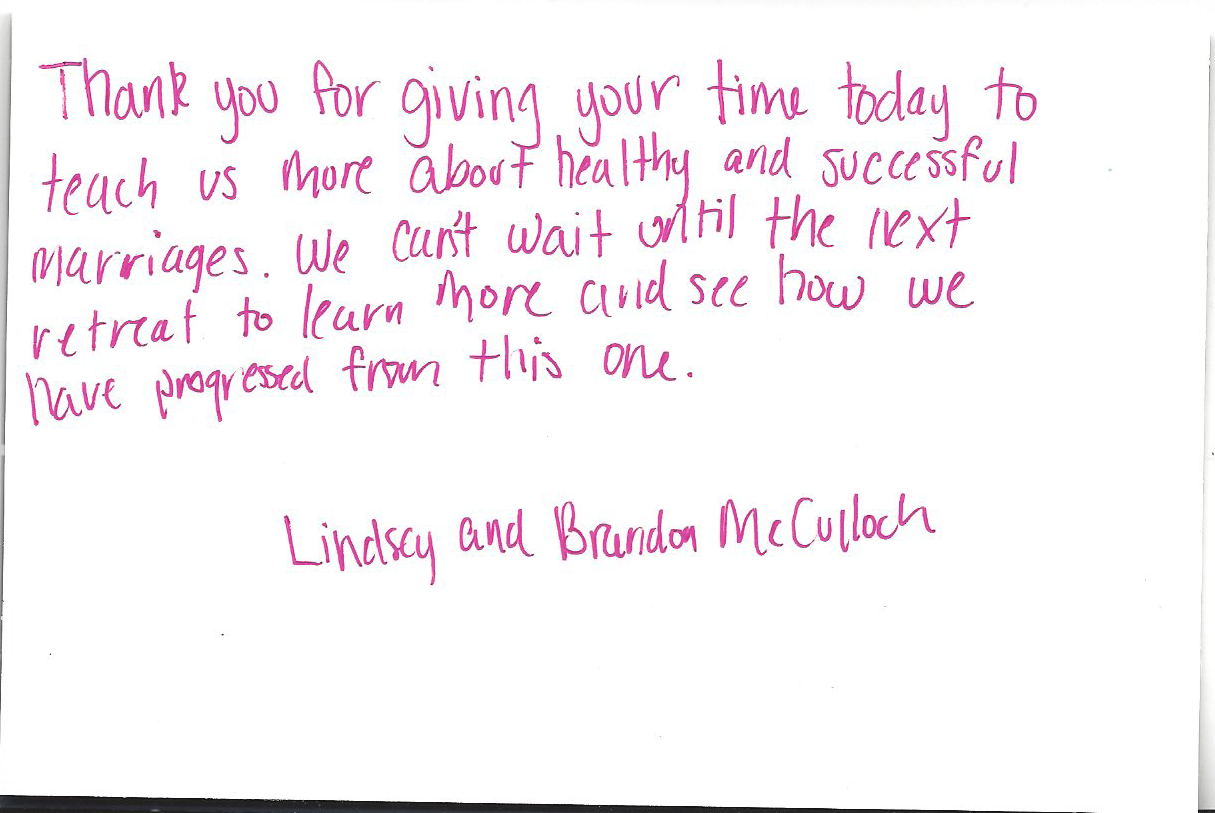 Thank you for giving your time today to
teach us more about healthy and successful
marriages. We can't wait until the next
retreat to learn more and see how we
have progressed from this one.
Lindsey and Brandon McCulloch